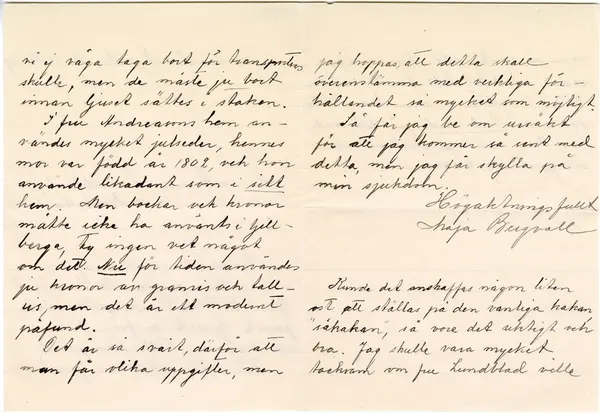 vi ej våga taga bort för transportens
skulle, men de måste ju bort
innan ljuset sättes i staken.
I fru Andreasons hem an-
vändes mycket julseder, hennes
mor var född år 1802, och hon
använde likadant som i sitt
hem. Men bockar och kronor
måtte icke ha använts i Gill-
berga, ty ingen vet något
om det. Nu för tiden användes
ju kronor av granris och tall-
ris, men det är ett modernt
påfund.
Det är så svårt, därför att
man får olika uppgifter, men
jag hoppas, att detta skall
överenstämma med verkliga för-
hållandet så mycket som möjligt.
Så får jag be om ursäkt
för att jag kommer så sent med
detta, men jag får skylla på
min sjukdom.
Högaktningsfullt
Maja Bergvall
Kunde det anskaffas någon liten
ost att ställas på den vanliga kakan
"såkakan", så vore det riktigt och
bra. Jag skulle vara mycket
tacksam om fru Lundblad ville